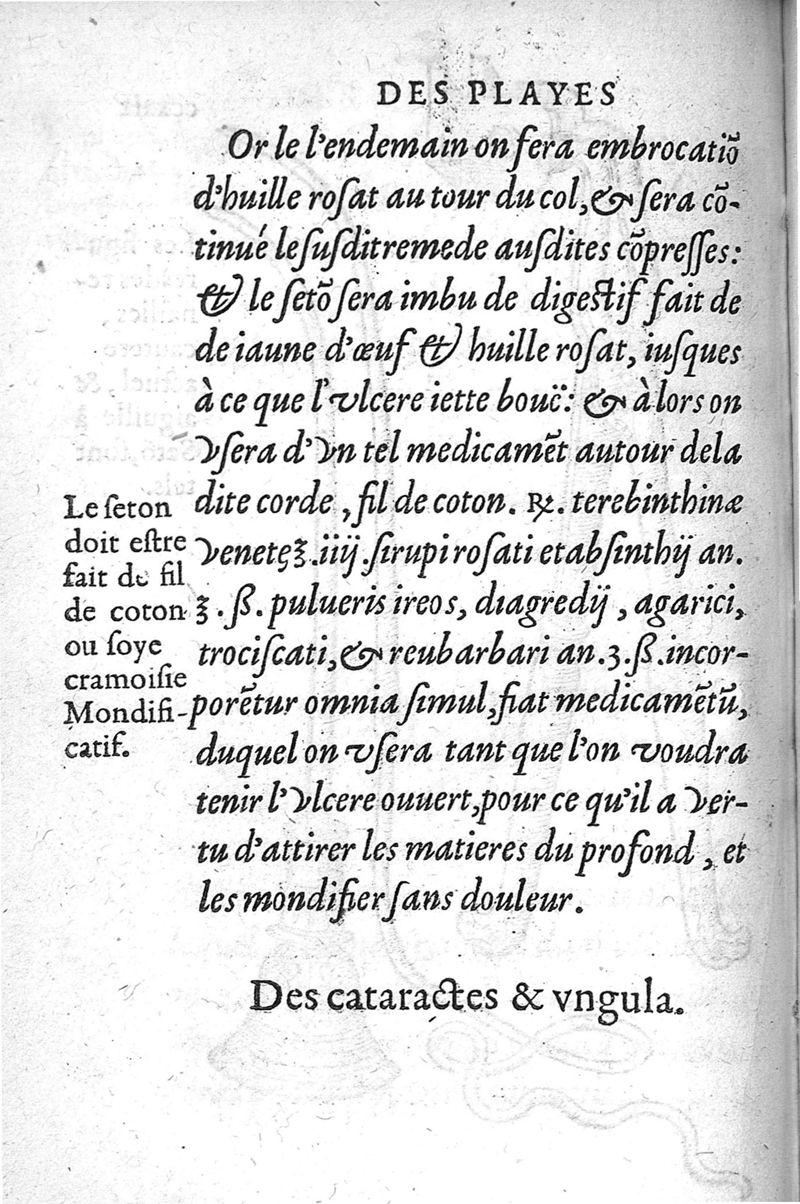 DES PLAYES
Or le l'endemain on fera embrocatiõ
d'huille rosat au tour du col, & sera cõ-
tinué le susdit remede ausdites cõpresses:
& le setõ sera imbu de digestif fait de
de iaune d'œuf & huille rosat, iusques
à ce que l'vlcere iette bouë: & à lors on
vsera d'vn tel medicamẽt autour de la
dite corde, fil de coton. ℞. terebinthinæ
venetę ℥.iiij. sirupi rosati et absinthij an.
℥.ß. pulueris ireos, diagredij, agarici,
trociscati, & reubarbari an.ʒ.ß. incor-
porẽtur omnia simul, fiat medicamẽtũ,
duquel on vsera tant que l'on voudra
tenir l'vlcere ouuert, pour ce qu'il a ver-
tu d'attirer les matieres du profond, et
les mondifier sans douleur.
Le seton
doit estre
fait de fil
de coton
ou soye
cramoisie
Mondifi-
catif.
Des cataractes & vngula.